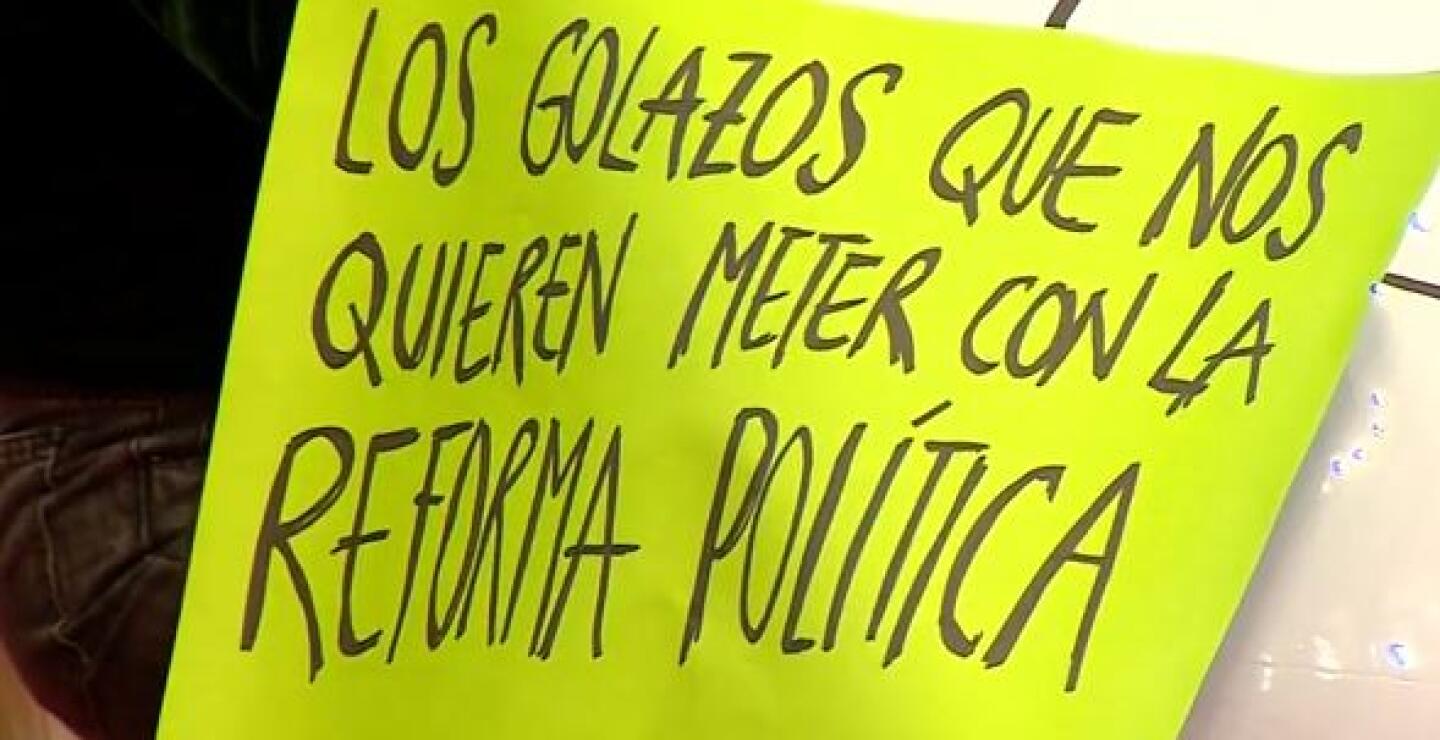 LOS GOLAZOS QUE NOS
QUIEREN METER CON LA
REFORMA POLÍTICA